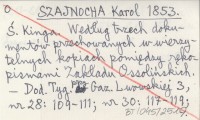 SZAJNOCHA Karol 1853.
Ś. Kinga. Według trzech doku-
mentów przechowanych w wierzy-
telnych kopiach pomiędzy ręko-
pismami Zakładu Ossolińskich.
— Dod. Tyg. Gaz. Lwowskiej 3,
nr 28: 109-111; nr 30: 117-119;